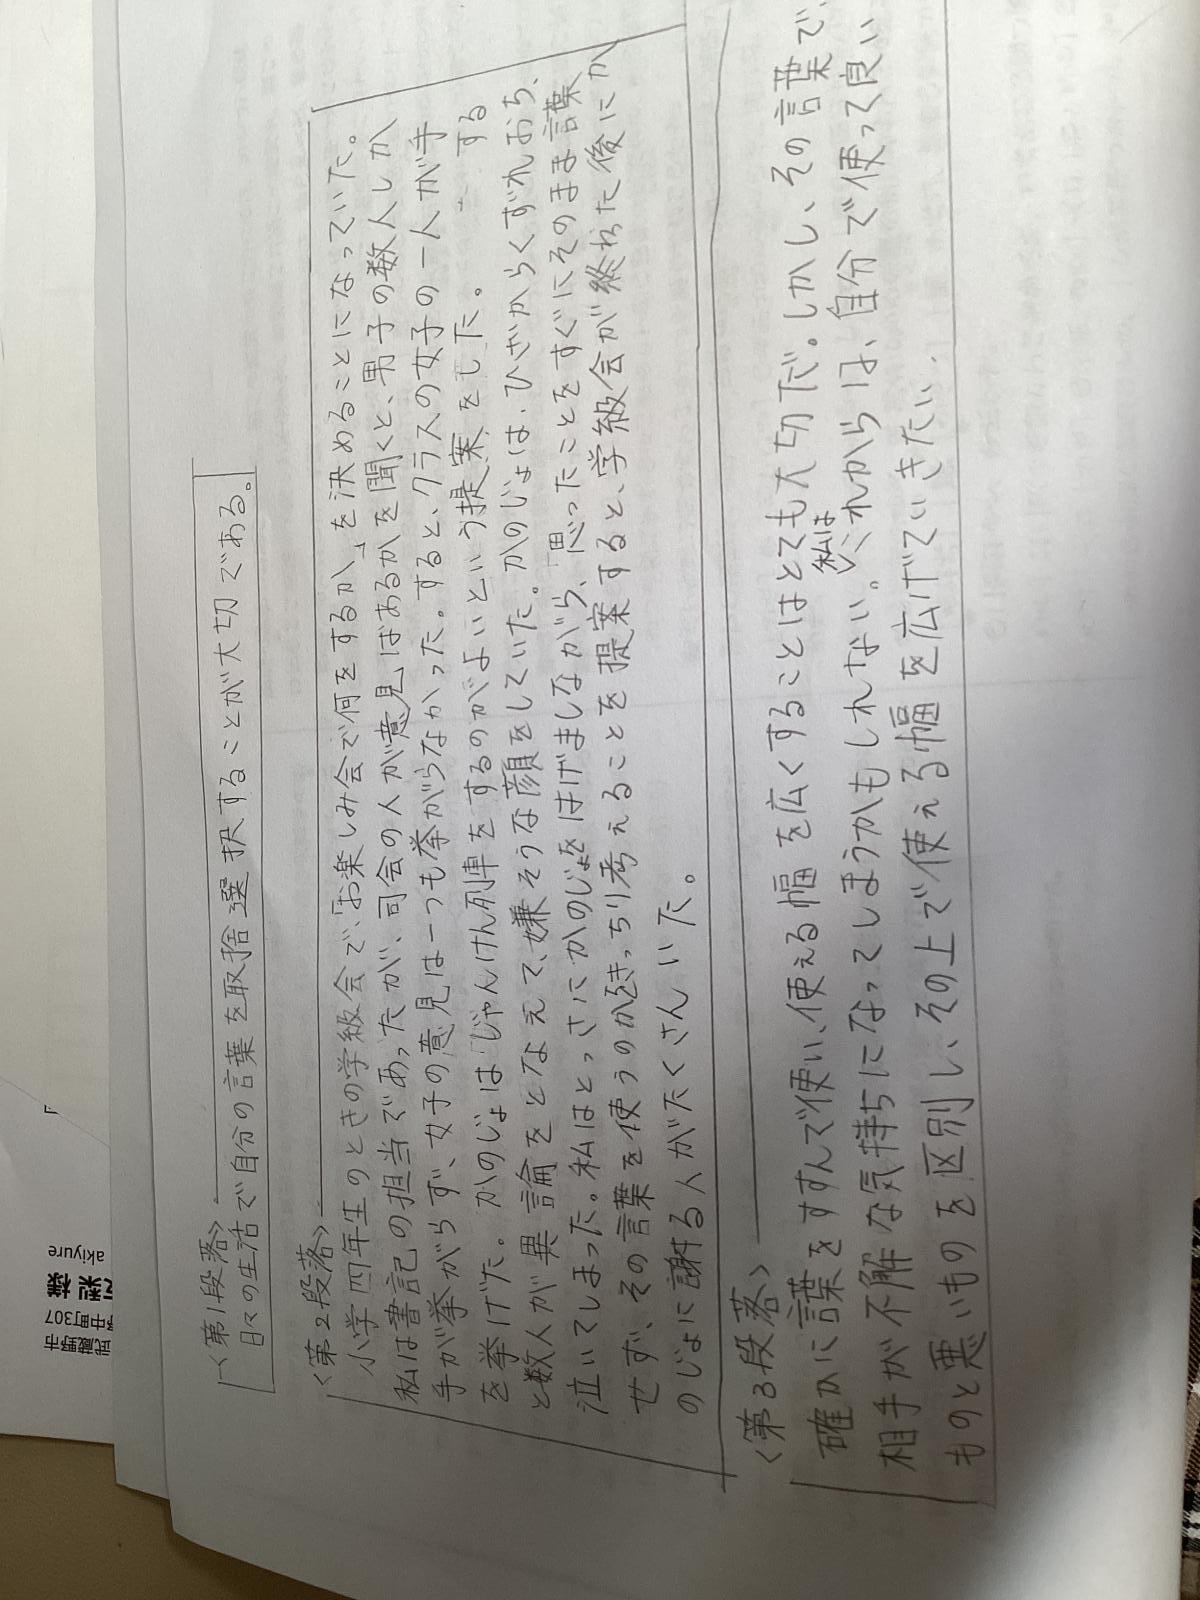 <第1段落>
日々の生活で自分の言葉を取捨選択することが大切である。
<第2段落>
小学四年生のときの学級会で、「お楽しみ会で何をするか」を決めることになっていた。
私は書記の担当であったが、司会の人が意見はあるかを聞くと、男子の数人しか
手が挙がらず、女子の意見は一つも挙がらなかった。すると、クラスの女子の一人が手
を挙げた。かのじょは「じゃんけん列車をするのがよいという提案をした。する
と数人が異論をとなえて、嫌そうな顔をしていた。かのじょは、ひざからくずれおち、
泣いてしまった。私はとっさにかのじょをはげましながら、「思ったことをすぐにそのまま言葉
せず、その言葉を使うのかきっちり考えることを提案すると、学級会が終わった後にか
のじょに謝る人がたくさんいた。
<第3段落>
確かに言葉をすすんで使い、使える幅を広くすることはとても大切だ。しかし、その言葉で、
相手が不解な気持ちになってしまうかもしれない。私はこれからは、自分で使って良い
ものと悪いものを区別し、その上で使える幅を広げていきたい。
武蔵野市
中町307
梨 様
akiyure